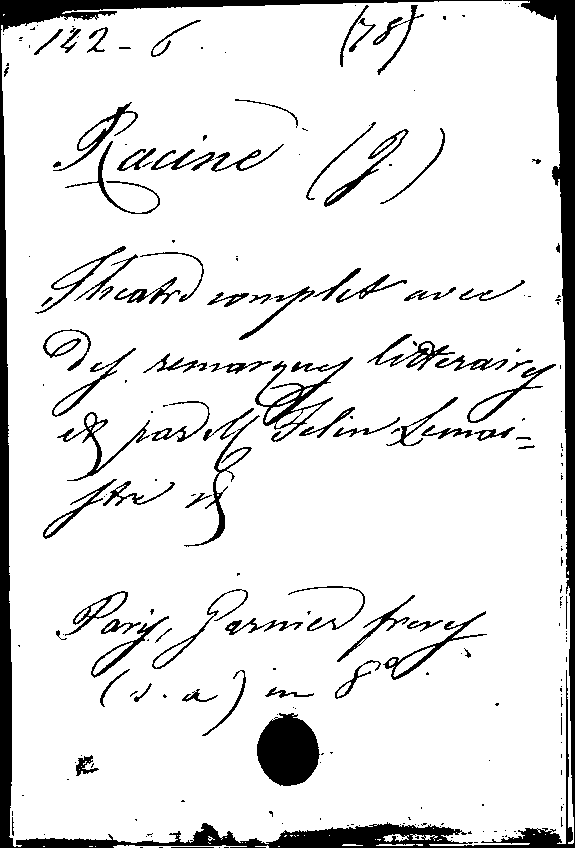 142-6. (78)
Racine (J.)
Theatre complet avec
des remarques litteraires
et par M Felin Lemai=
stre et
Paris, Garnier freres
(s. a) in 8º.